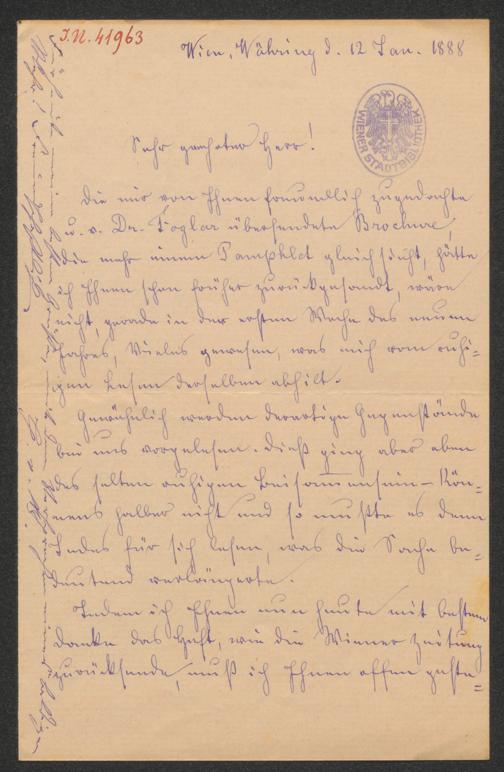 I.N. 41963
Wien, Währing d. 12 Jan. 1888
WIENER STADTBIBLIOTHEK
Sehr geehrter Herr!
Die mir von Ihnen freundlich zugedachte
u. v. Dr. Foglar übersendete Brochure,
die mehr einem Pamphlet gleich sieht, hätte
ich Ihnen schon früher zurückgesandt, wäre
nicht, gerade in der ersten Woche des neuen
Jahres, Vieles gewesen, was mich vom ruhi=
gen Lesen derselben abhielt.
Gewöhnlich werden derartige Gegenstände
bei uns vorgelesen. Dieß ging aber eben
des selten ruhigen Beisammensein-Kön=
nens halber nicht und so mußte es denn
Jedes für sich lesen, was die Sache be=
deutend verlängerte.
Indem ich Ihnen nun heute mit bestem
Danke das Heft, wie die Wiener Zeitung
zurücksende, muß ich Ihnen offen geste=